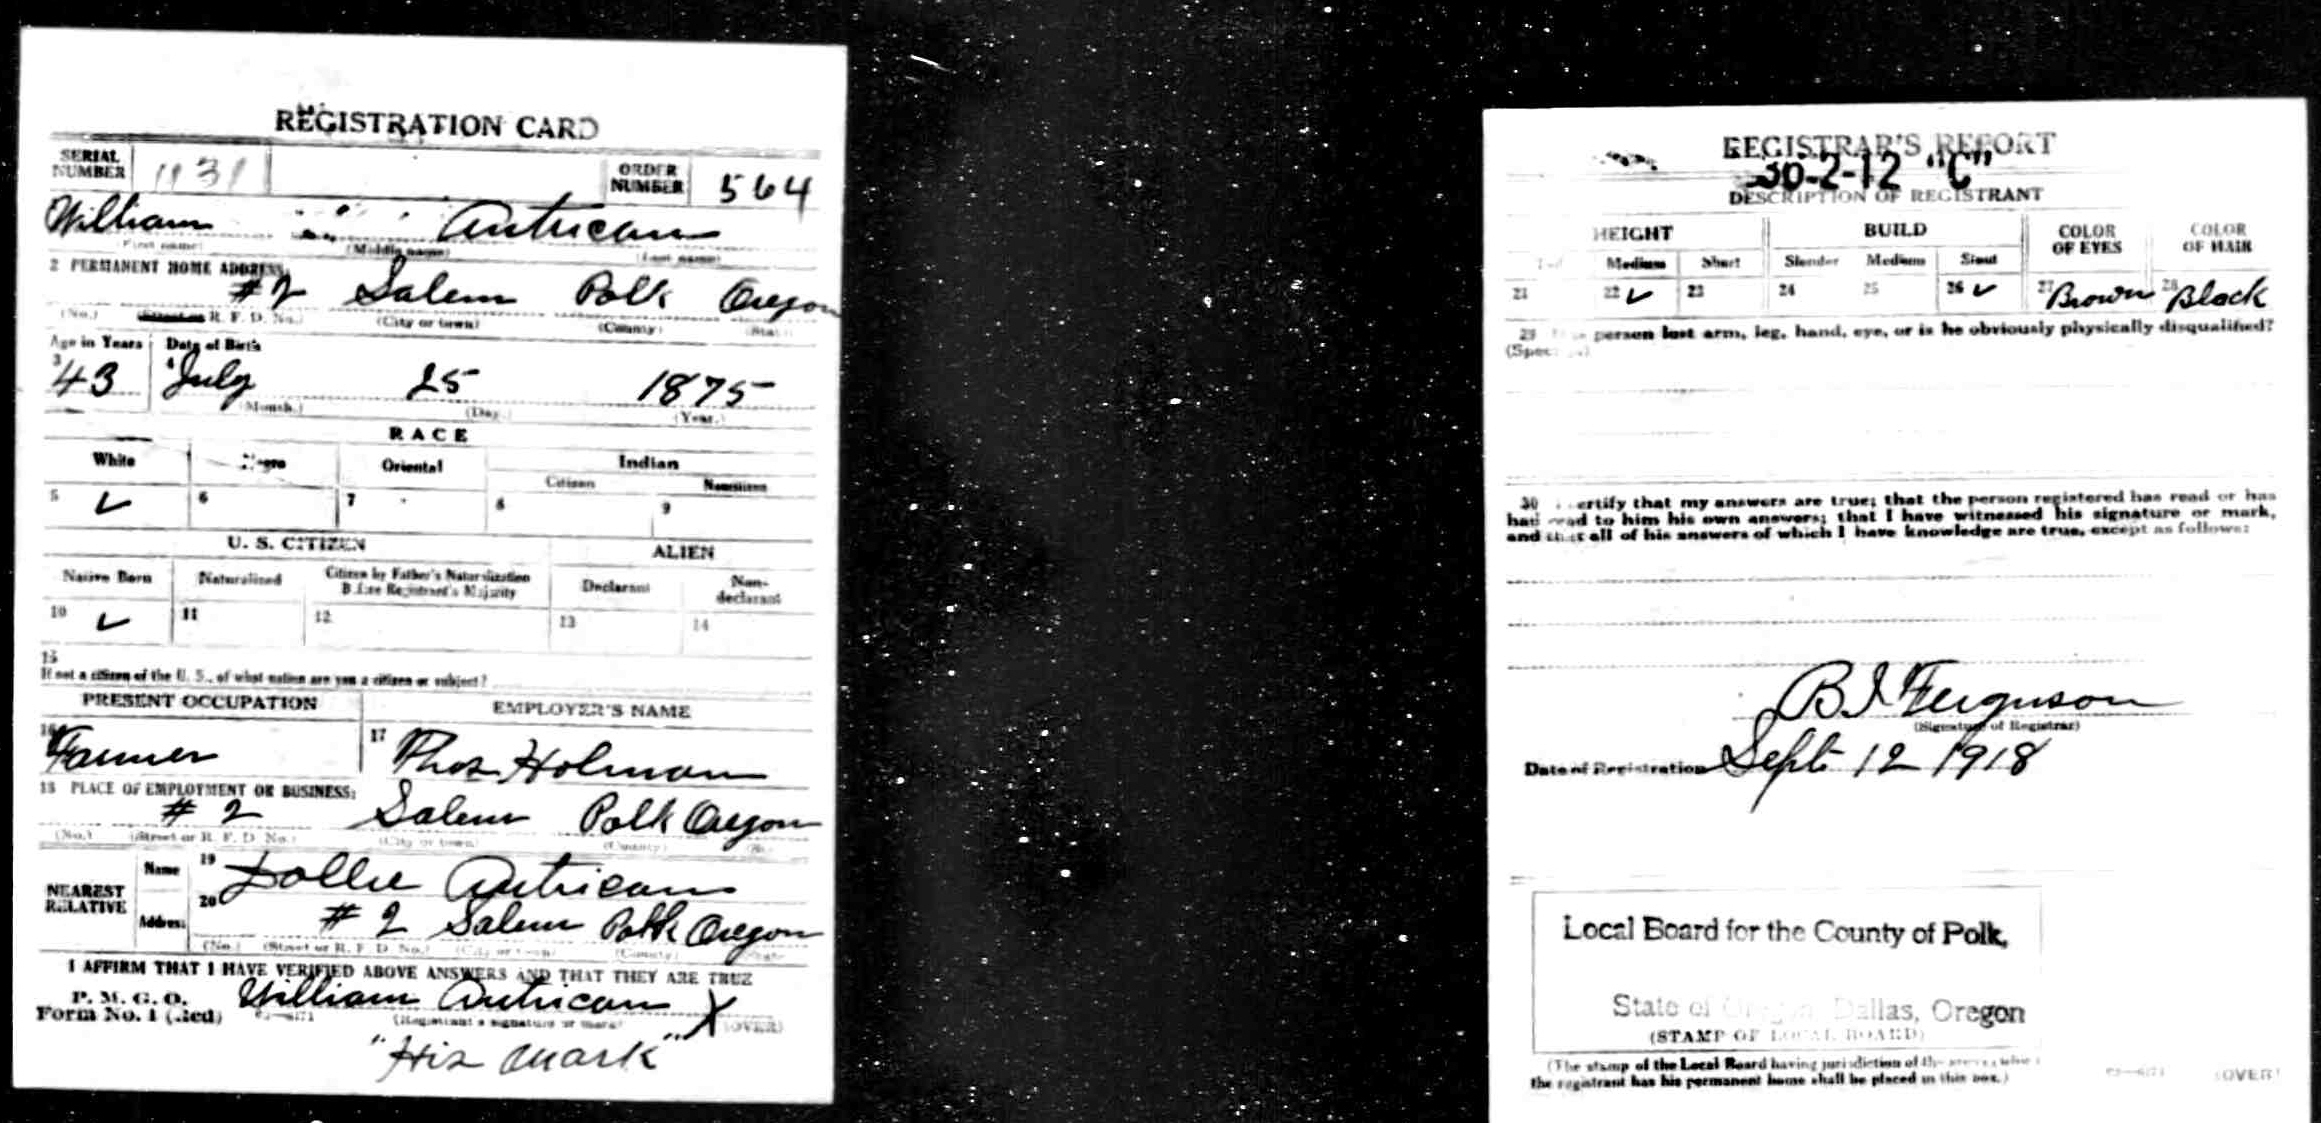 REGISTRATION CARD
SERIAL NUMBER 1131 ORDER NUMBER 564
William Autrican
(First name) (Middle name) (Last name)
2 PERMANENT HOME ADDRESS:
#2 Salem Polk Oregon
(No.) R. F. D. No.) (City or town) (County) (State)
Age in Years Date of Birth
3 43 4 July 25 1875
(Month.) (Day.) (Year.)
RACE
White Negro Oriental Indian
Citizen Noncitizen
5 ✓ 6 7 8 9
U. S. CITIZEN ALIEN
Native Born Naturalized Citizen by Father's Naturalization Before Registrant's Majority Declarant Non-declarant
10 ✓ 11 12 13 14
15
If not a citizen of the U. S., of what nation are you a citizen or subject?
PRESENT OCCUPATION EMPLOYER'S NAME
16 Farmer 17 Thos Holman
18 PLACE OF EMPLOYMENT OR BUSINESS:
#2 Salem Polk Oregon
(No.) (Street or R. F. D. No.) (City or town) (County)
NEAREST RELATIVE Name 19 Dollie Autrican
Address 20 #2 Salem Polk Oregon
(No.) (Street or R. F. D. No.) (City or town) (County) State
I AFFIRM THAT I HAVE VERIFIED ABOVE ANSWERS AND THAT THEY ARE TRUE
P. M. G. O.
Form No. 1 (Red) William Autrican X
(Registrant's signature or mark) (OVER)
"His Mark"
REGISTRAR'S REPORT
36-2-12 "C"
DESCRIPTION OF REGISTRANT
HEIGHT BUILD COLOR OF EYES COLOR OF HAIR
Medium Short Slender Medium Stout
21 22 ✓ 23 24 25 26 ✓ 27 Brown 28 Black
29 person lost arm, leg, hand, eye, or is he obviously physically disqualified?
30 certify that my answers are true; that the person registered has read or has
had read to him his own answers; that I have witnessed his signature or mark,
and that all of his answers of which I have knowledge are true, except as follows:
B I Ferguson
(Signature of Registrar)
Date of Registration Sept 12 1918
Local Board for the County of Polk,
State of Oregon, Dallas, Oregon
(STAMP OF LOCAL BOARD)
(The stamp of the Local Board having jurisdiction of the area in which
the registrant has his permanent home shall be placed in this box.)
(OVER)